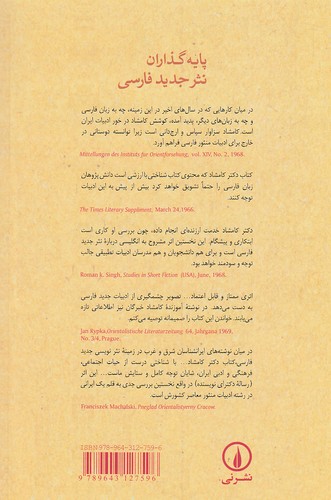 پایه‌گذاران
نثر جدید فارسی
در میان کارهایی که در سال‌های اخیر در این زمینه، چه به زبان فارسی
و چه به زبان‌های دیگر، پدید آمده، کوشش کامشاد در خور ادبیات ایران
است. کامشاد سزاوار سپاس و ارج‌دانی است زیرا توانسته دوستانی در
خارج برای ادبیات منثور فارسی فراهم آورد.
Mitteilungen des Instituts fur Orientforschung, vol. XIV, No. 2, 1968.
کتاب دکتر کامشاد که محتوی کتاب شناختی با ارزشی است دانش‌پژوهان
زبان فارسی را حتماً تشویق خواهد کرد بیش از پیش به این ادبیات
توجه کنند.
The Times Literary Supplement, March 24,1966.
دکتر کامشاد خدمت ارزنده‌ای انجام داده، چون بررسی او کاری است
ابتکاری و پیشگام. این نخستین اثر مشروح به انگلیسی دربارهٔ نثر جدید
فارسی است و برای هم دانشجویان و هم مدرسان ادبیات تطبیقی جالب
توجه و سودمند خواهد بود.
Roman k. Singh, Studies in Short Fiction (USA), June, 1968.
اثری ممتاز و قابل اعتماد... تصویر چشمگیری از ادبیات جدید فارسی
به دست می‌دهد. در نوشتهٔ آموزندهٔ کامشاد خبرگان نیز اطلاعاتی تازه
می‌یابند. خواندن این کتاب را صمیمانه توصیه می‌کنم.
Jan Rypka, Orientalistische Literaturzeitung 64. Johtgana 1969.
No. 3/4, Prague.
در میان نوشته‌های ایرانشناسان شرق و غرب در زمینهٔ نثر نویسی جدید
فارسی، کتاب دکتر کامشاد... با شناختی درست از حیات اجتماعی،
فرهنگی و ادبی ایران، شایان توجه کامل و ستایش ماست... این اثر
(رسالهٔ دکترای نویسنده) در واقع نخستین بررسی جدی به قلم یک ایرانی
در رشته ادبیات منثور معاصر کشورش است.
Franciszek Machalski, Przeglad Orientalistyerny Cracow.
ISBN 978-964-312-759-6
9 789643 127596
نشر نی